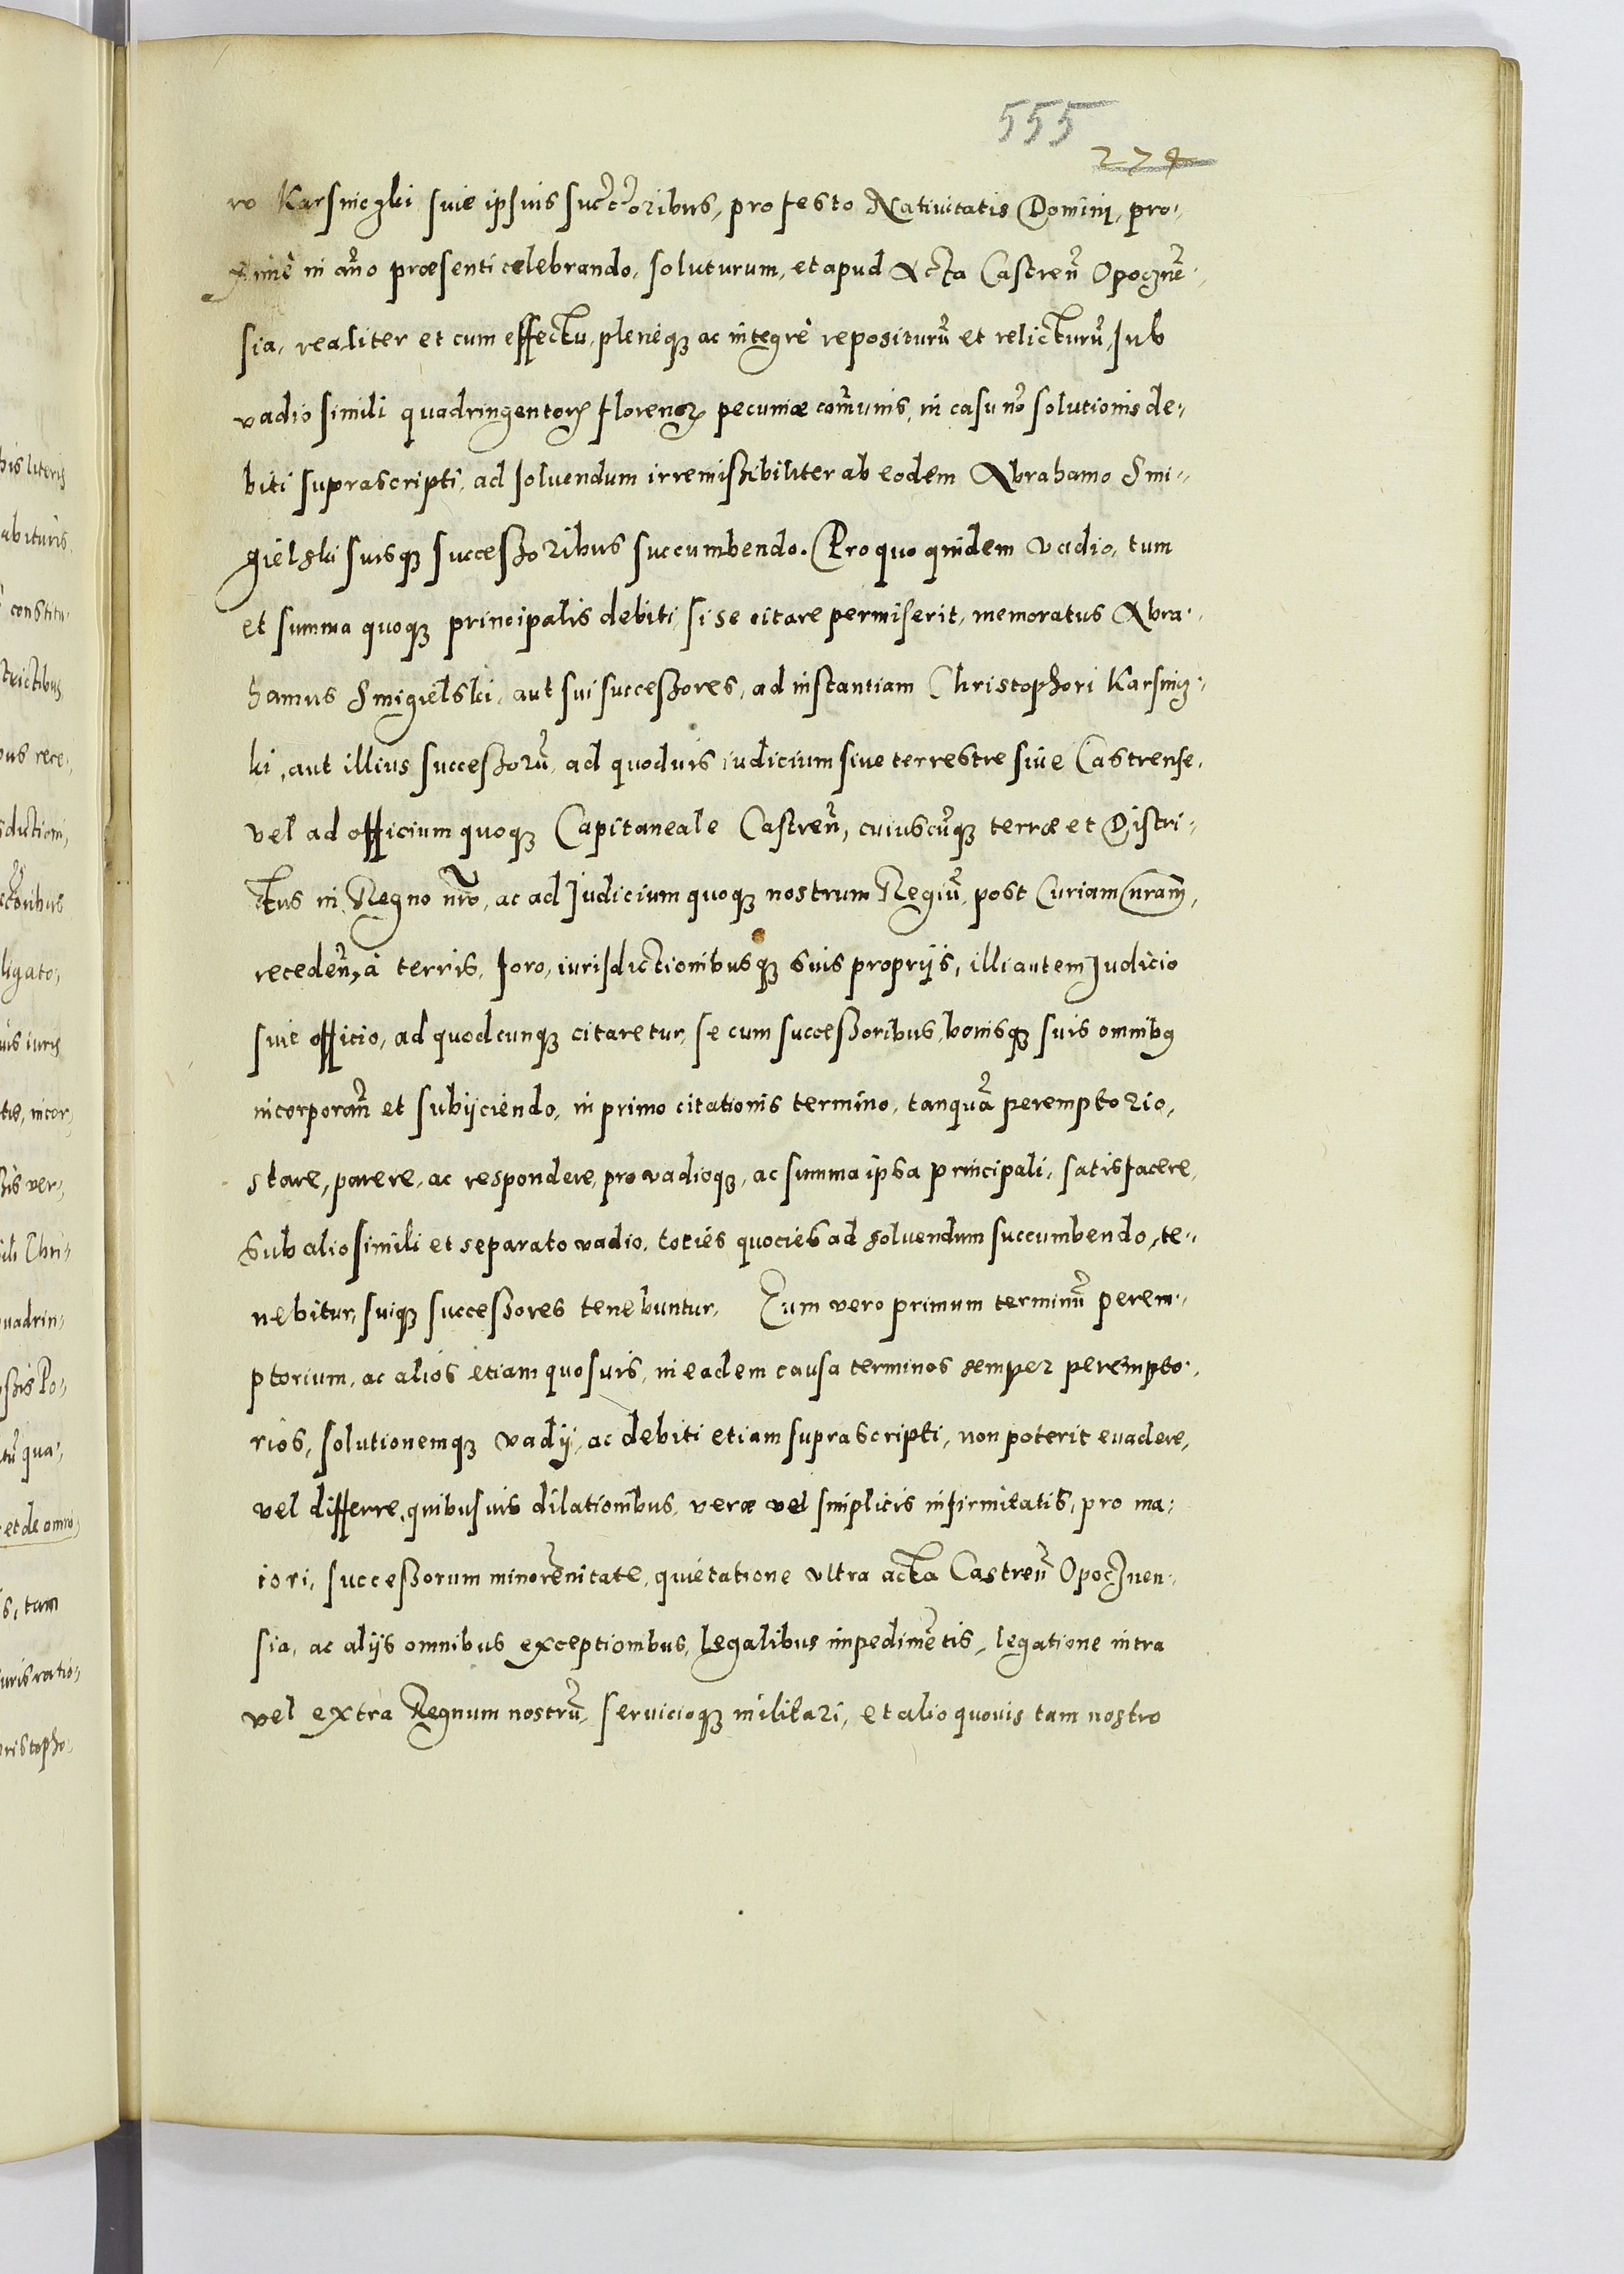 555
224
ro Karsniczki siue ipsius succ̃c̃oribus, pro festo Natiuitatis Domini, pro-
ximè in añno præsenti celebrando, soluturum, et apud Acta Castreñ Opocznẽ-
sia, realiter et cum effectu, pleneq́ue ac integrè repositurũ et relicturũ, sub
vadio simili quadringentorꝝ florenorꝝ pecuniæ cõmunis, in casu nõ solutionis de-
biti suprascripti, ad soluendum irremissibiliter ab eodem Abrahamo Smi-
gielski suisqꝫ successoribus succumbendo. Pro quo quidem vadio, tum
et summa quoqꝫ principalis debiti, si se citare permiserit, memoratus Abra-
hamus Smigielski, aut sui successores, ad instantiam Christophori Karsnicz-
ki, aut illius successorũ, ad quoduis iudicium siue terrestre siue Castrense,
vel ad officium quoqꝫ Capitaneale Castreñ, cuiuscũqꝫ terræ et Distri-
ctus in Regno nr̃o, ac ad Judicium quoqꝫ nostrum Regiũ, post Curiam nr̃am,
recedeñ, à terris, foro, iurisdictionibusqꝫ suis proprijs, illi autem Judicio
siue officio, ad quodcunqꝫ citaretur, se cum successoribus, bonisqꝫ suis omnibꝰ
incorporañ et subijciendo, in primo citationis termino, tanquã peremptorio,
stare, parere, ac respondere, pro vadioqꝫ, ac summa ipsa principali, satisfacere,
Sub alio simili et separato vadio, toties quocies ad soluendum succumbendo, te-
nebitur, suiqꝫ successores tenebuntur, Eum vero primum terminũ perem-
ptorium, ac alios etiam quosuis, in eadem causa terminos semper perempto-
rios, solutionemqꝫ vadij, ac debiti etiam suprascripti, non poterit euadere,
vel differre, quibusuis dilationibus, veræ vel simplicis infirmitatis, pro ma-
iori, successorum minorẽnitate, quietatione vltra acta Castreñ Opocznen-
sia, ac alijs omnibus exceptionibus, Legalibus impedimẽtis, legatione intra
vel extra Regnum nostrũ, seruicioqꝫ militari, et alio quouis tam nostro